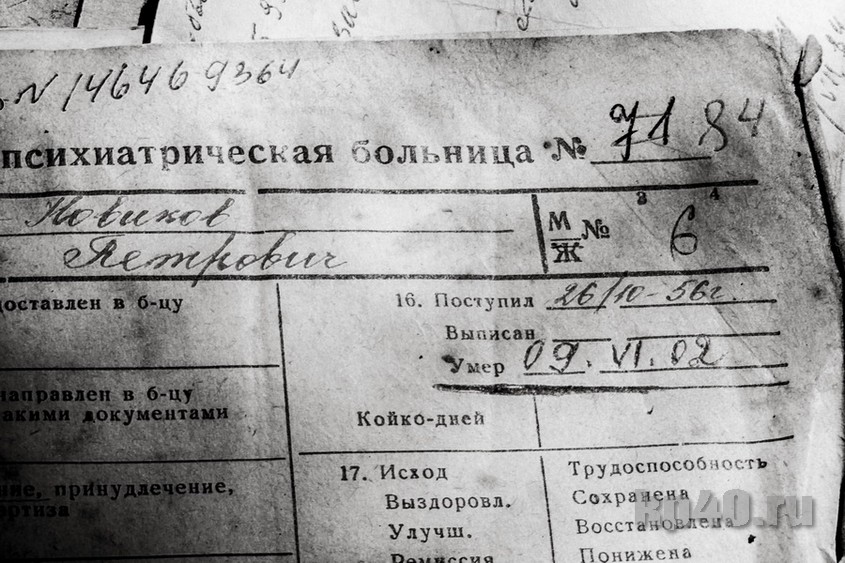 N 146469364
психиатрическая больница № 71 84
Новиков
Петрович
М/Ж № 3 4 6
доставлен в б-цу
16. Поступил 26/10-56г.
Выписан
Умер 09.VI.02
направлен в б-цу
какими документами
Койко-дней
ние, принудлечение,
ртиза
17. Исход
Выздоровл.
Улучш.
Ремиссия
Трудоспособность
Сохранена
Восстановлена
Понижена
кр40.ru